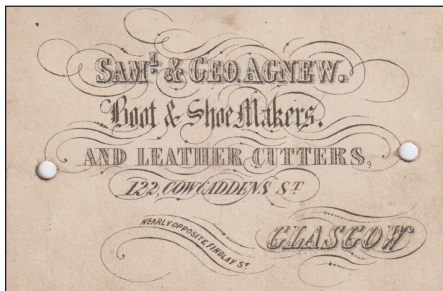 SAML & GEO. AGNEW.
Boot & Shoe Makers.
AND LEATHER CUTTERS,
122, COWCADDENS ST
NEARLY OPPOSITE FINDLAY ST
GLASGOW